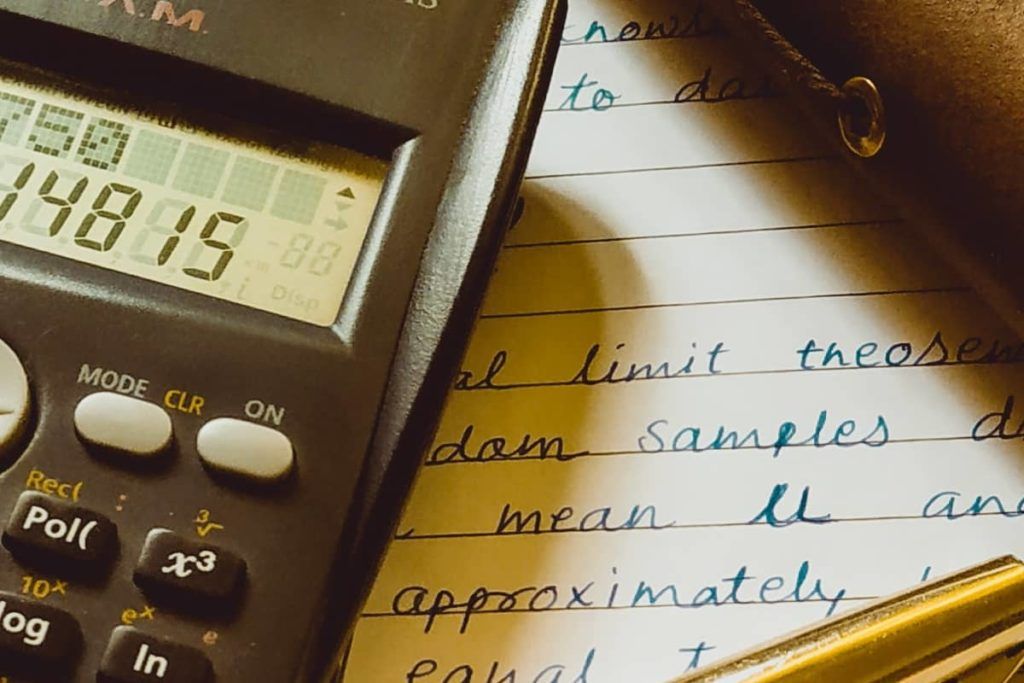 750
14815
Disp
MODE CLR ON
Rec(
Pol(
3√
x³
10ˣ
log
eˣ e
ln
to
al limit theorem
dom samples
mean μ and
approximately
equal